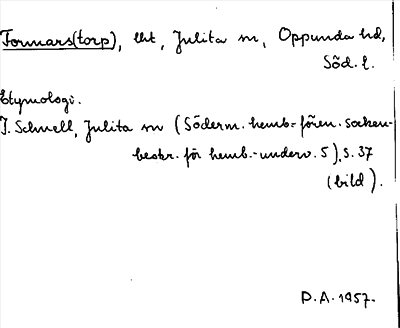 Formars(torp), lht, Julita sn, Oppunda hd,
Söd. l.
Etymologi.
I. Schnell, Julita sn (Söderm. hemb.-fören. socken-
beskr. för hemb.-underv. 5), s. 37
(bild).
P.A. 1957.